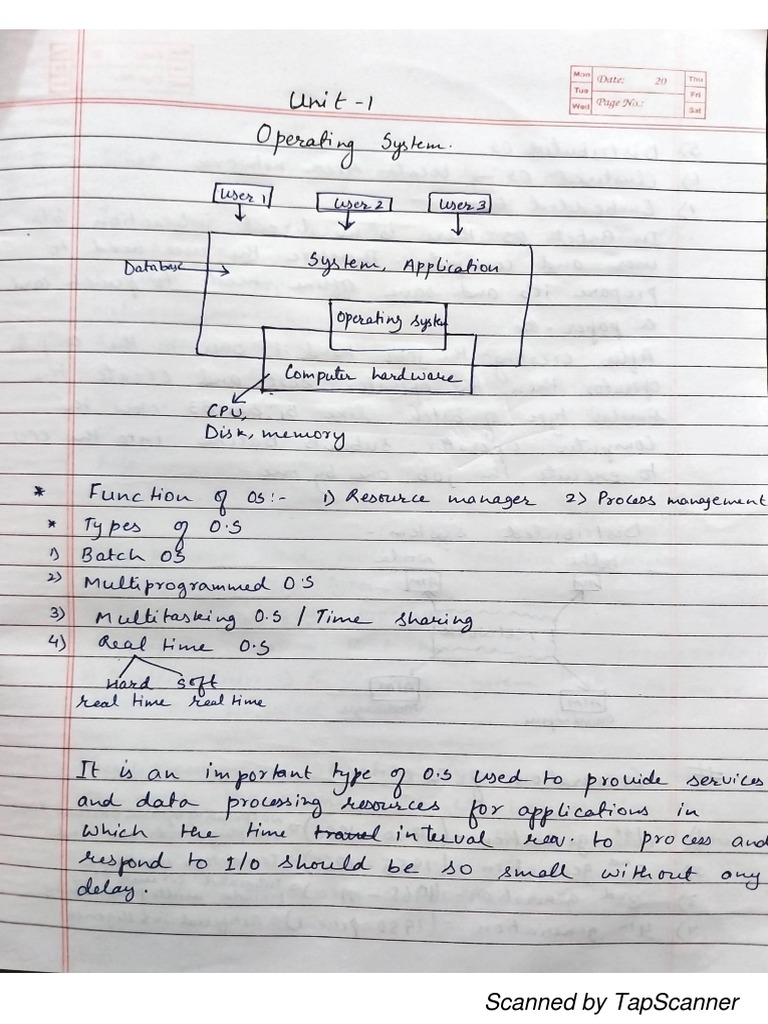 Mon Date: 20 Thu
Tue Fri
Wed Page No.: Sat
Unit -1
Operating System.
User 1 User 2 User 3
Database System, Application
Operating system
Computer hardware
CPU,
Disk, memory
* Function of OS:- 1) Resource manager 2) Process management
* Types of O.S
1) Batch OS
2) Multiprogrammed O.S
3) Multitasking O.S / Time sharing
4) Real time O.S
Hard Soft
real time real time
It is an important type of O.S used to provide services
and data processing resources for applications in
which the time interval req. to process and
respond to I/O should be so small without any
delay.
Scanned by TapScanner